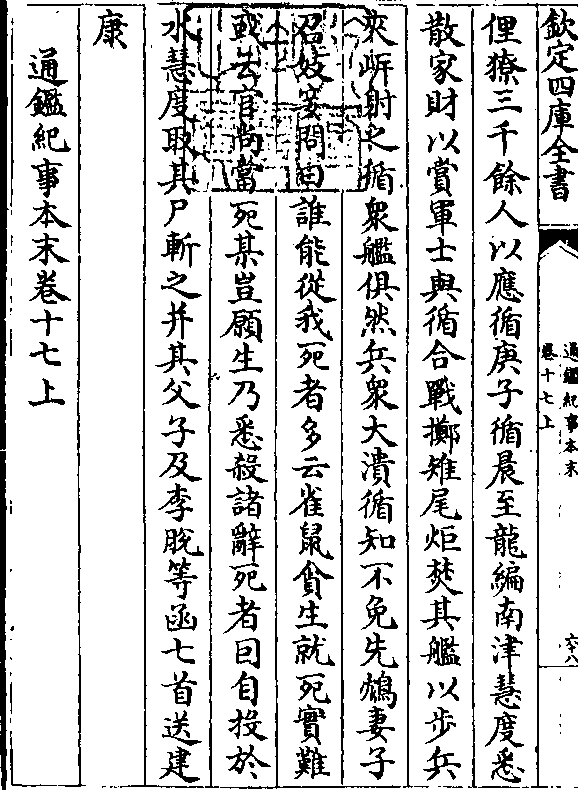 欽定四庫全書
通鑑紀事本末
卷十七上
六十八
俚獠三千餘人以應循庚子循晨至龍編南津慧度悉
散家財以賞軍士與循合戰擲雉尾炬焚其艦以步兵
夾岍射之循衆艦俱然兵衆大潰循知不免先鴆妻子
召妓妾問曰誰能從我死者多云雀鼠貪生就死實難
或云官尚當死某豈願生乃悉殺諸辭死者因自投於
水慧度取其尸斬之并其父子及李脫等函七首送建
康
通鑑紀事本末卷十七上